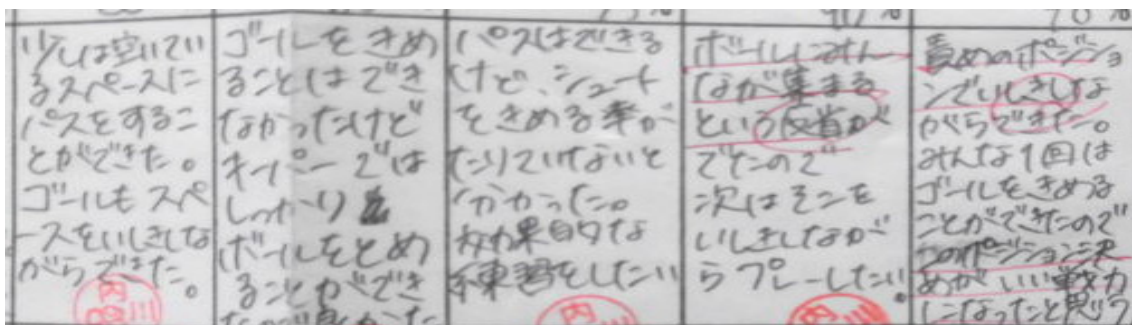 75%
90%
70%
は空いてい
るスペースに
パスをするこ
とができた。
ゴールもスペ
ースをいしきしな
がらできた。
ゴールをきめ
ることはでき
なかったけど
キーパーでは
しっかり
ボールをとめ
ることができ
パスはできる
けど、シュート
をきめる率が
たりていないと
分かった。
効果的な
練習をしたい
ボールにみん
なが集まる
という反省が
でたので
次はそこを
いしきしなが
らプレーしたい。
責めのポジショ
ンでいしきしな
がらできた。
みんな1回は
ゴールをきめる
ことができたので
このポジション決
めがいい戦力
になったと思う